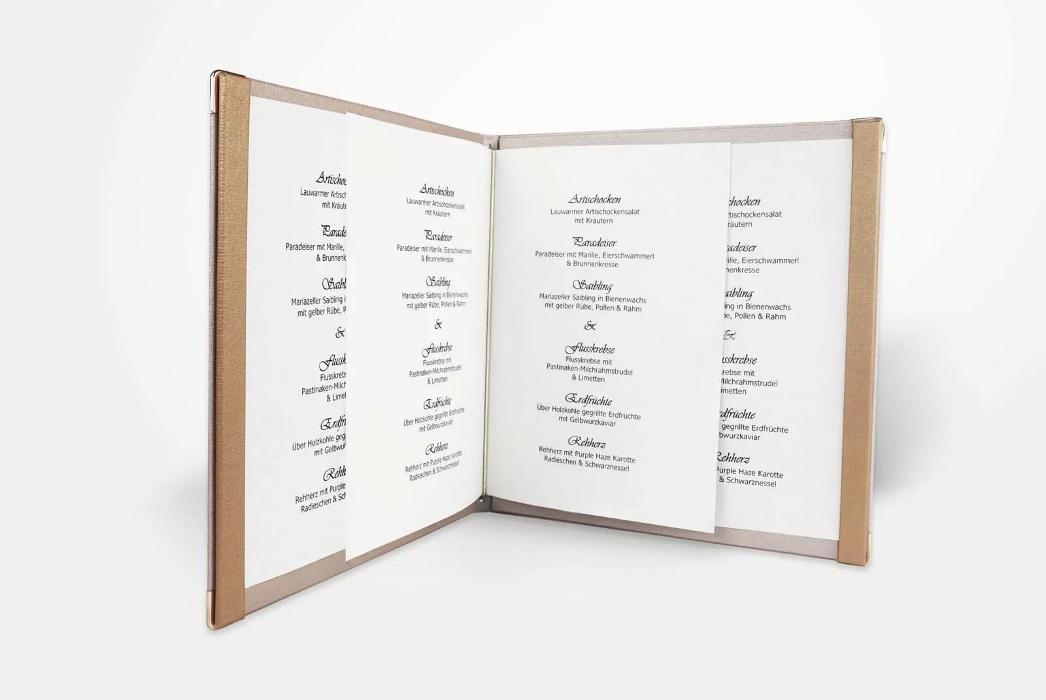 Lauwarmer Artisc
mit
Paradeiser mit Marille,
&
Mariazeller Saibling i
mit gelber Rübe,
&
Pastinaken-Milch
&
Über Holzkohle geg
mit
Rehherz mit Purple
Radieschen & Sch
Artischocken
Lauwarmer Artischockensalat
mit Kräutern
Paradeiser
Paradeiser mit Marille, Eierschwammerl
& Brunnenkresse
Saibling
Mariazeller Saibling in Bienenwachs
mit gelber Rübe, Pollen & Rahm
&
Flusskrebse
Flusskrebse mit
Pastinaken-Milchrahmstrudel
& Limetten
Erdfrüchte
Über Holzkohle gegrillte Erdfrüchte
mit Gelbwurzkaviar
Rehherz
Rehherz mit Purple Haze Karotte
Radieschen & Schwarznessel
Artischocken
Lauwarmer Artischockensalat
mit Kräutern
Paradeiser
Paradeiser mit Marille, Eierschwammerl
& Brunnenkresse
Saibling
Mariazeller Saibling in Bienenwachs
mit gelber Rübe, Pollen & Rahm
&
Flusskrebse
Flusskrebse mit
Pastinaken-Milchrahmstrudel
& Limetten
Erdfrüchte
Über Holzkohle gegrillte Erdfrüchte
mit Gelbwurzkaviar
Rehherz
Rehherz mit Purple Haze Karotte
Radieschen & Schwarznessel
hocken
tischockensalat
räutern
adeiser
ille, Eierschwammerl
nenkresse
aibling
ng in Bienenwachs
be, Pollen & Rahm
&
sskrebse
rebse mit
Milchrahmstrudel
imetten
dfrüchte
gegrillte Erdfrüchte
bwurzkaviar
Rehherz
Purple Haze Karotte
& Schwarznessel